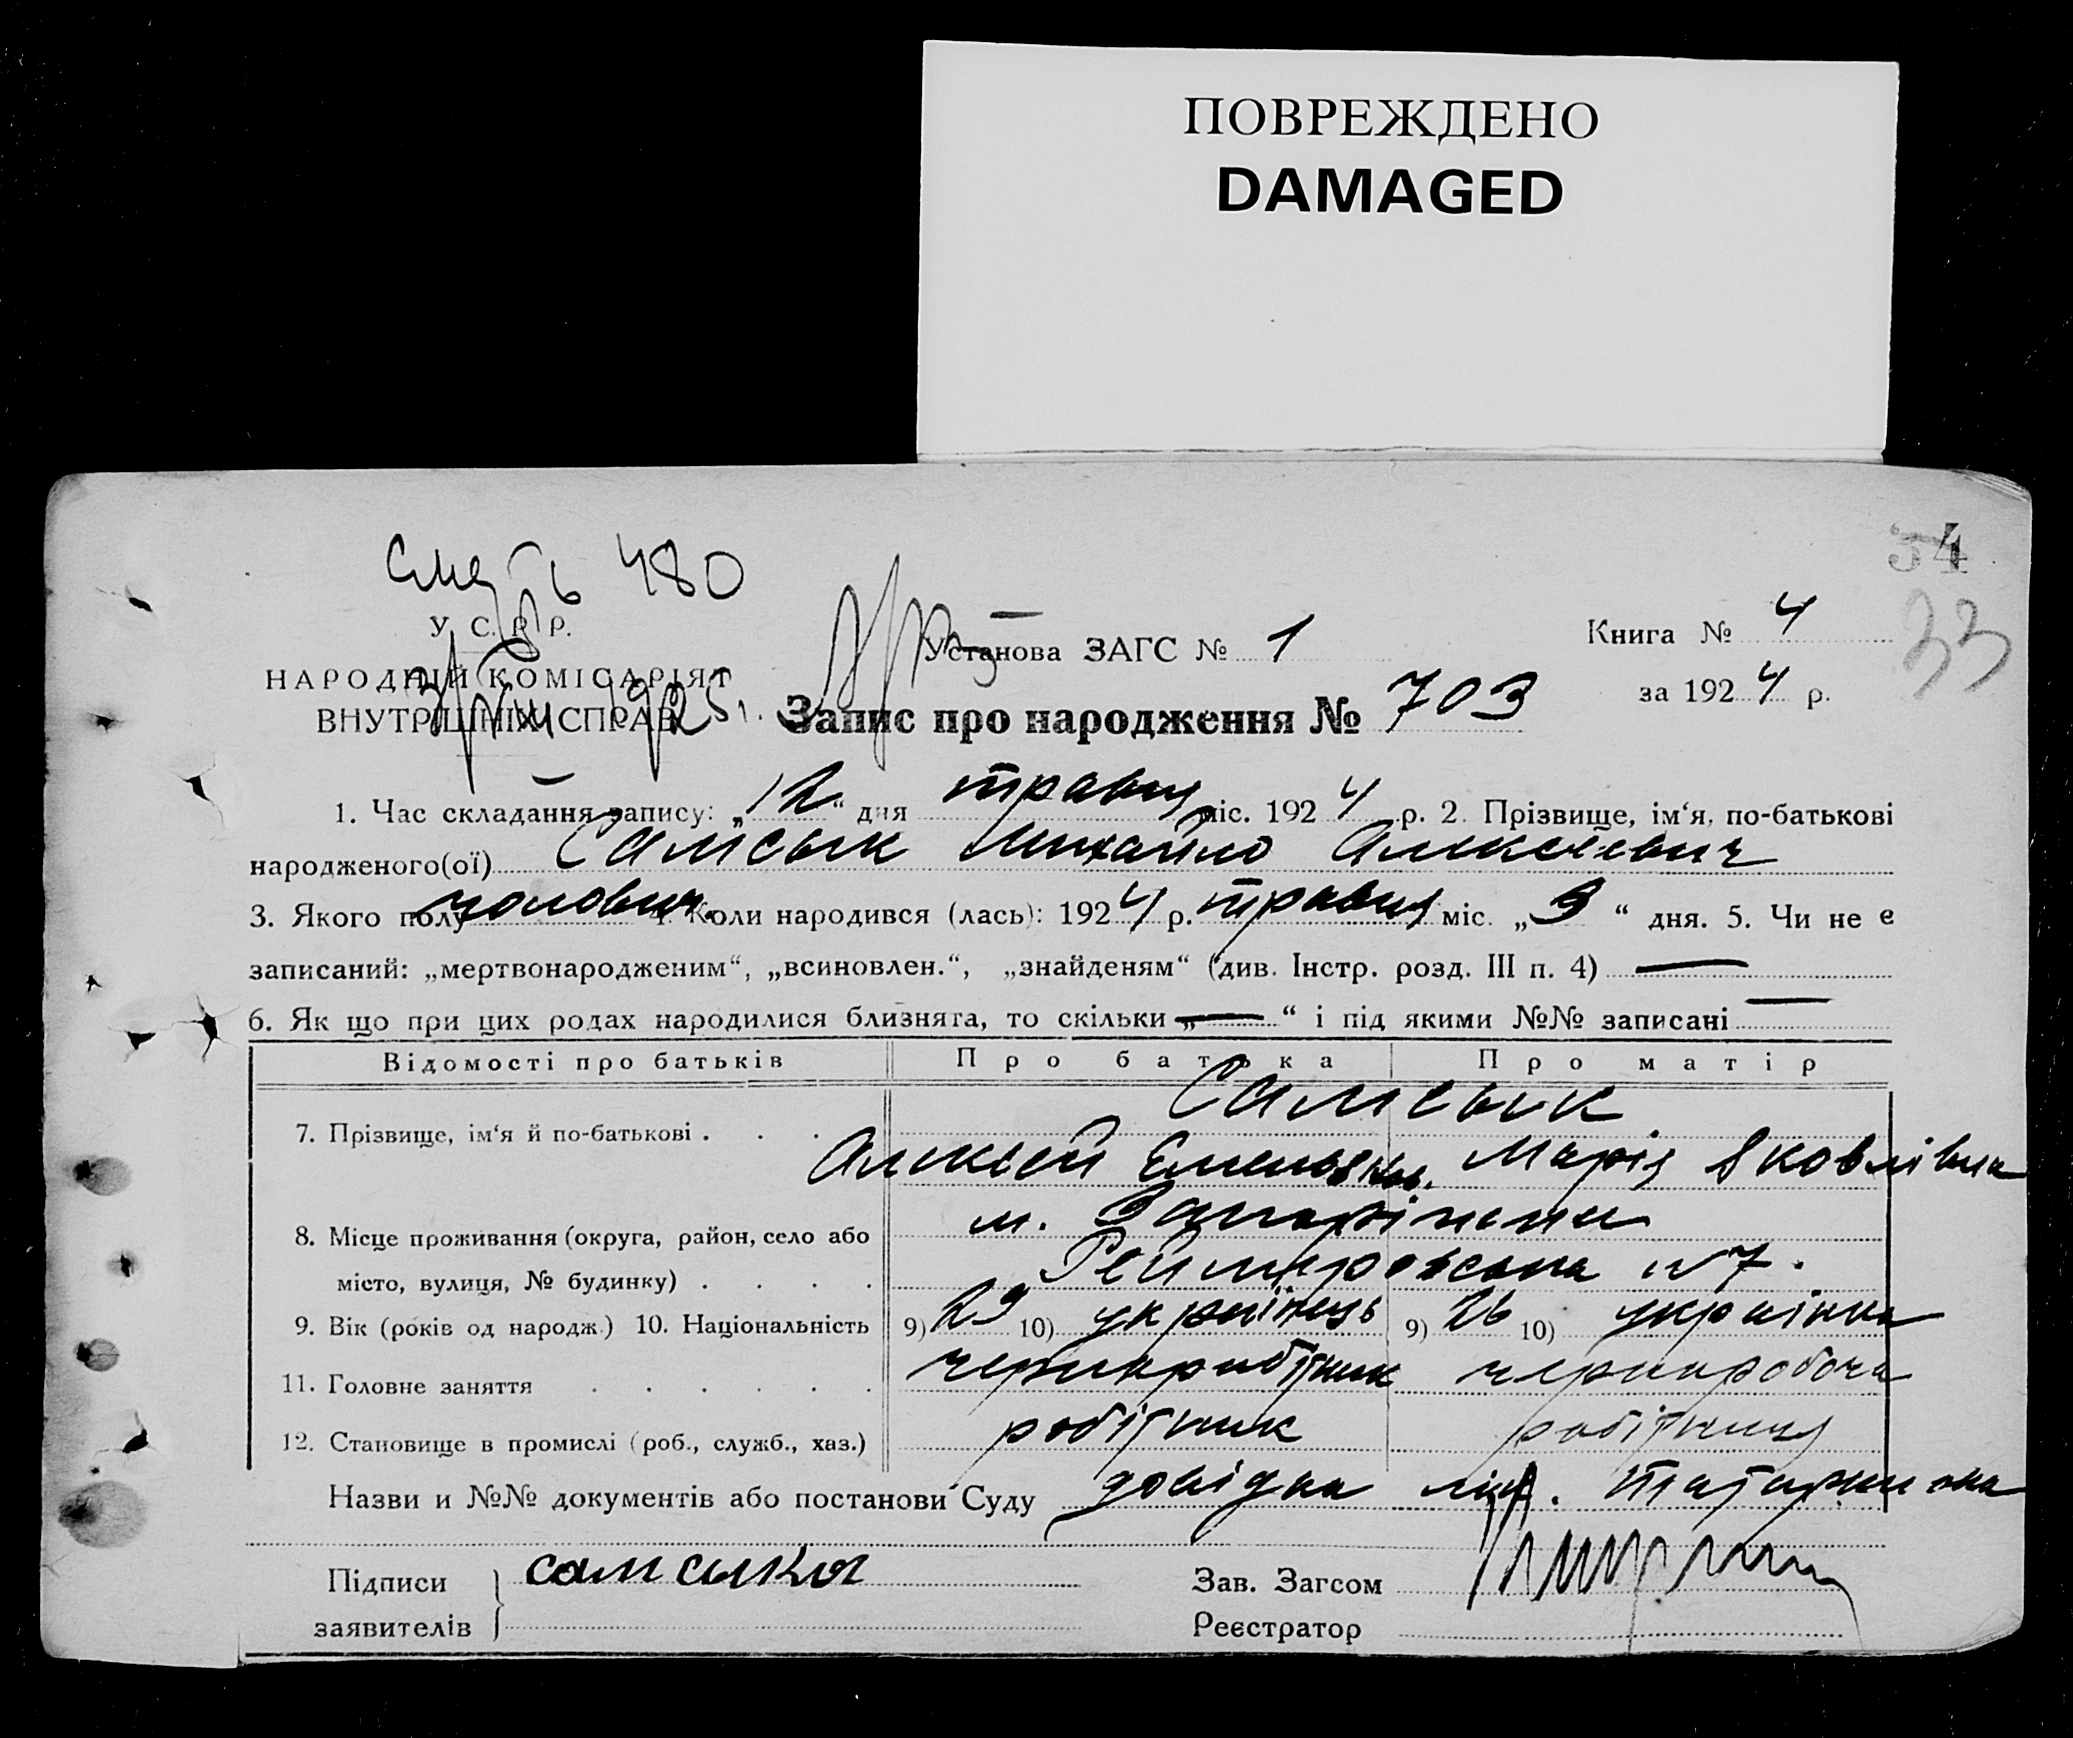 ПОВРЕЖДЕНО
DAMAGED
54
33
480
У. С. Р. Р.
НАРОДНІЙ КОМІСАРІЯТ
ВНУТРІШНІХ СПРАВ
Установа ЗАГС № 1
Книга № 4
за 1924 р.
Запис про народження № 703
1. Час складання запису: „12“ дня травня міс. 1924 р. 2. Прізвище, ім‘я, по-батькові
народженого(ої) Самсык Михайло Алексеевич
3. Якого полу чоловіч. 4. Коли народився (лась): 1924 р. травня міс. „9“ дня. 5. Чи не є
записаний: „мертвонародженим“, „всиновлен.“, „знайденям“ (див. Інстр. розд. III п. 4) —
6. Як що при цих родах народилися близнята, то скільки „—“ і під якими №№ записані —
Відомості про батьків Про батька Про матір
Самсык
7. Прізвище, ім‘я й по-батькові . . .
Алексей Емельянов. Марія Яковлівна
8. Місце проживання (округа, район, село або м.
місто, вулиця, № будинку) . . . . №7.
9. Вік (років од народж.) 10. Національність 9) 29 10) українець 9) 26 10) українка
11. Головне заняття . . . . . . чернорабітник чернорабоча
12. Становище в промислі (роб., служб., хаз.) робітник робітниця
Назви и №№ документів або постанови Суду довідка лік.
Підписи самсика Зав. Загсом
заявителів Реєстратор